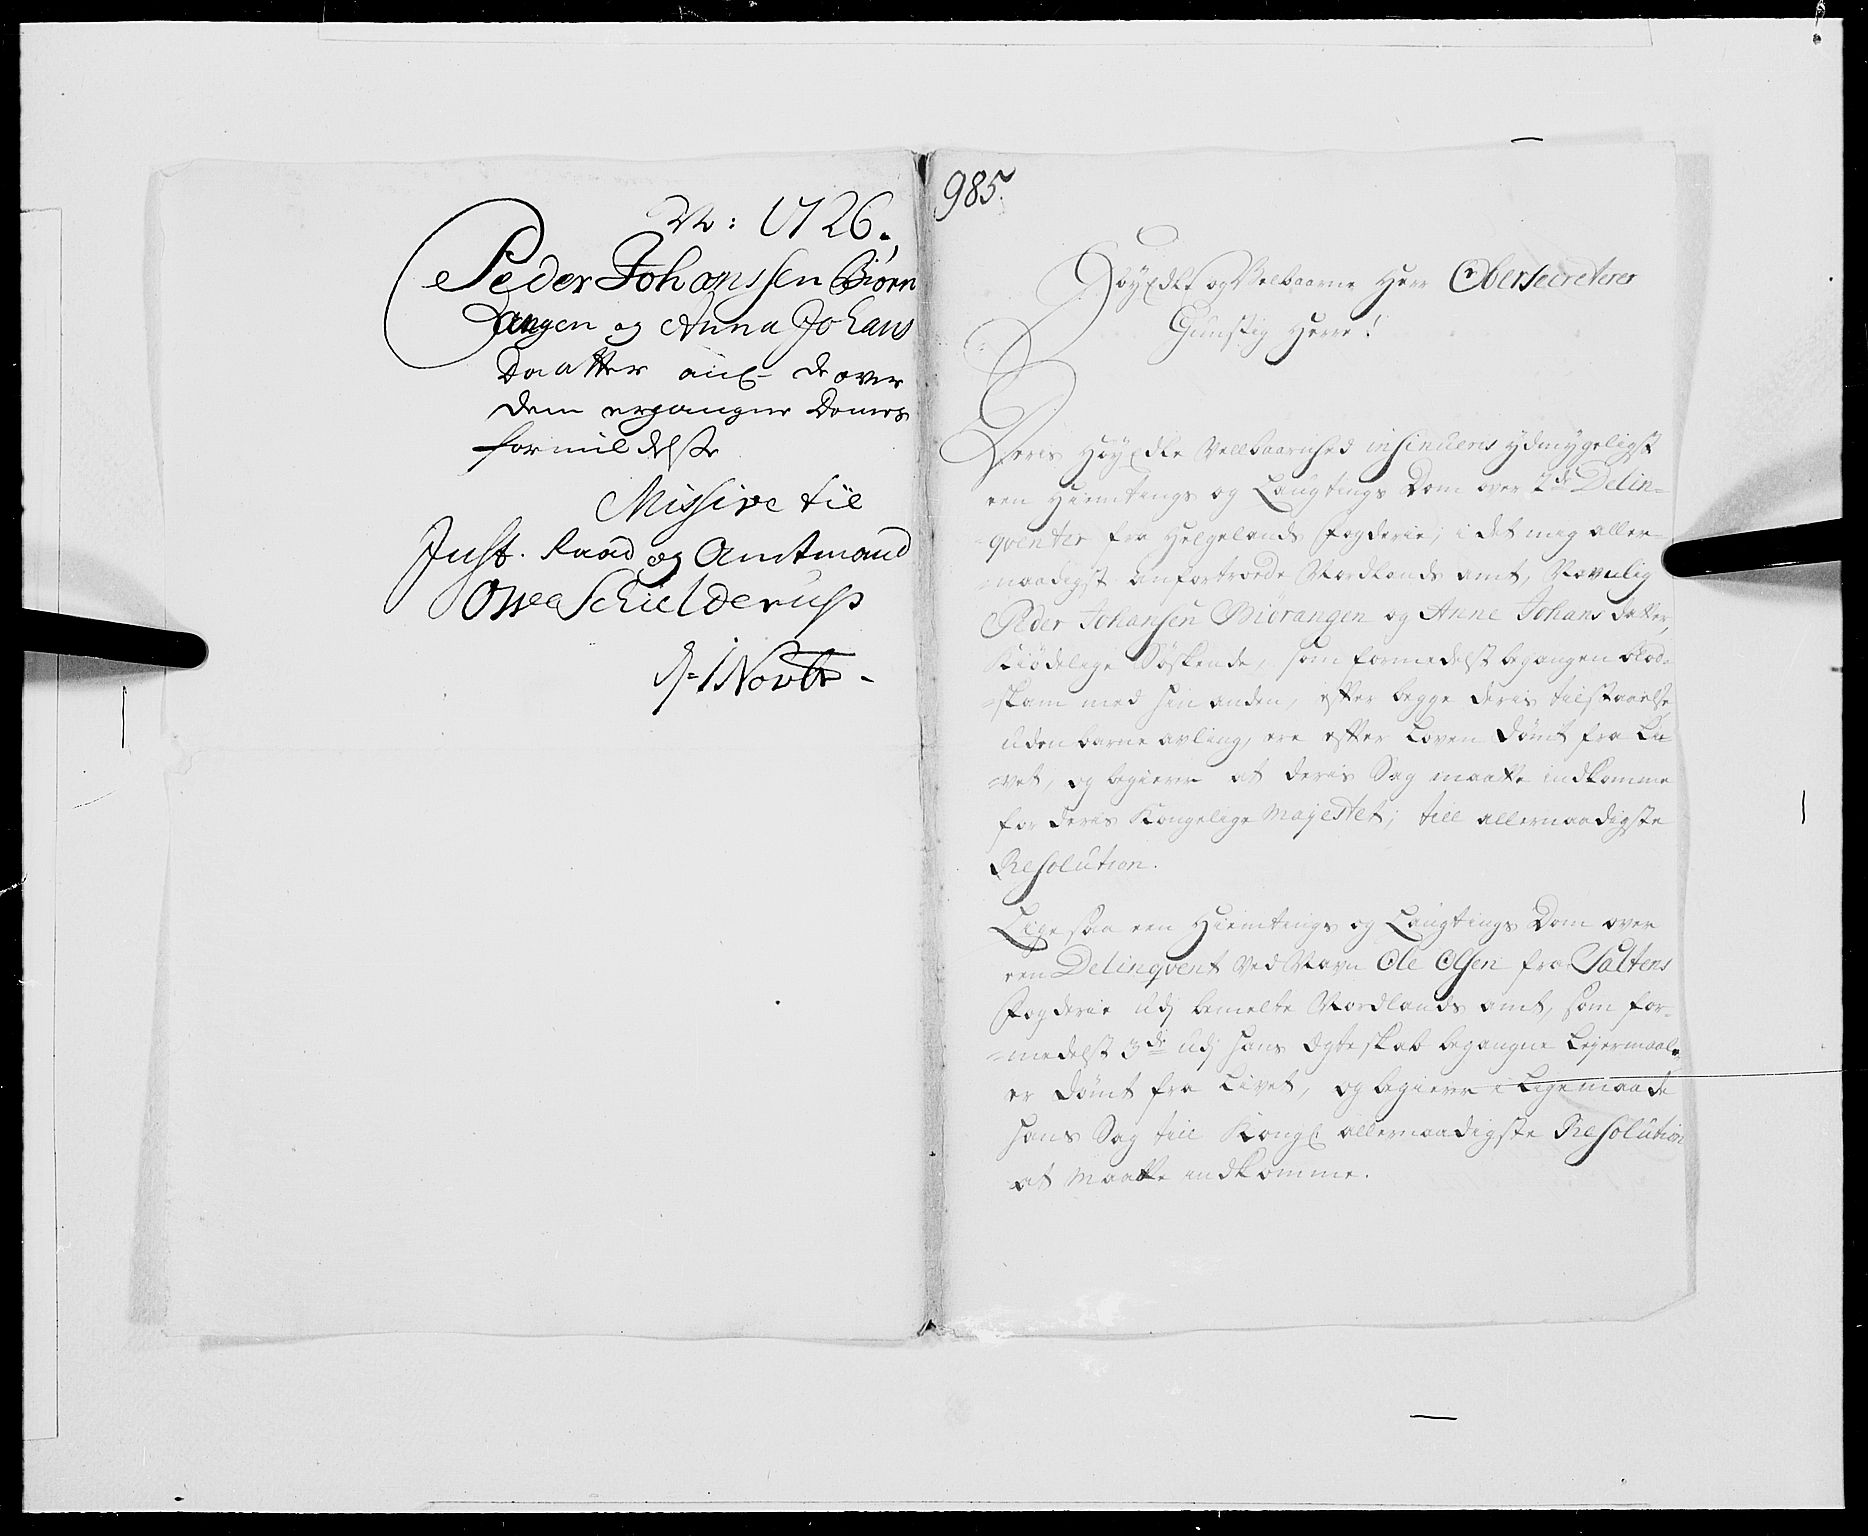 No: 1726.
Peder Johanssen Biørn
angen og Anna Johans
Daatter de over
dem ergangne Domes
formildelse
Missive til
Just. Raad og Amtmand
Owe Schielderup
d. 1 Novbr.
985.
HøyEdle og Velbaarne Herr Obersecreterer
Gunstig Herre!
Deris HøyEdle Vellbaarnhed insinueris ydmygeligst
een Hiemtings og Laugtings Dom over 2de Delin-
qventer fra Helgelands fogderie, i det mig aller-
naadigst anfortroede Nordlands amt, Navnlig
Peder Johansen Biørangen og Anne Johans datter,
Kiødelige Søskende, som formedelst begangen blod-
skam med hin anden, efter begge deris tilstaaelse,
uden barne avling, ere efter Loven dømt fra Li-
vet, og begierer at deris Sag maatte indkomme
for deris Kongelige Majestet, till allernaadigste
Resolution.
Lige saa een Hiemtings og Laugtings Dom over
een Delinqvent ved Navn Ole Olsen fra Saltens
fogderie udj bemelte Nordlands amt, som for-
medelst 3de udj hans Egteskab begangne Lejermaale
er dømt fra Livet, og begierer i Ligemaade
hans Sag till Kongl. allernaadigste Resolution
at maatte indkomme.